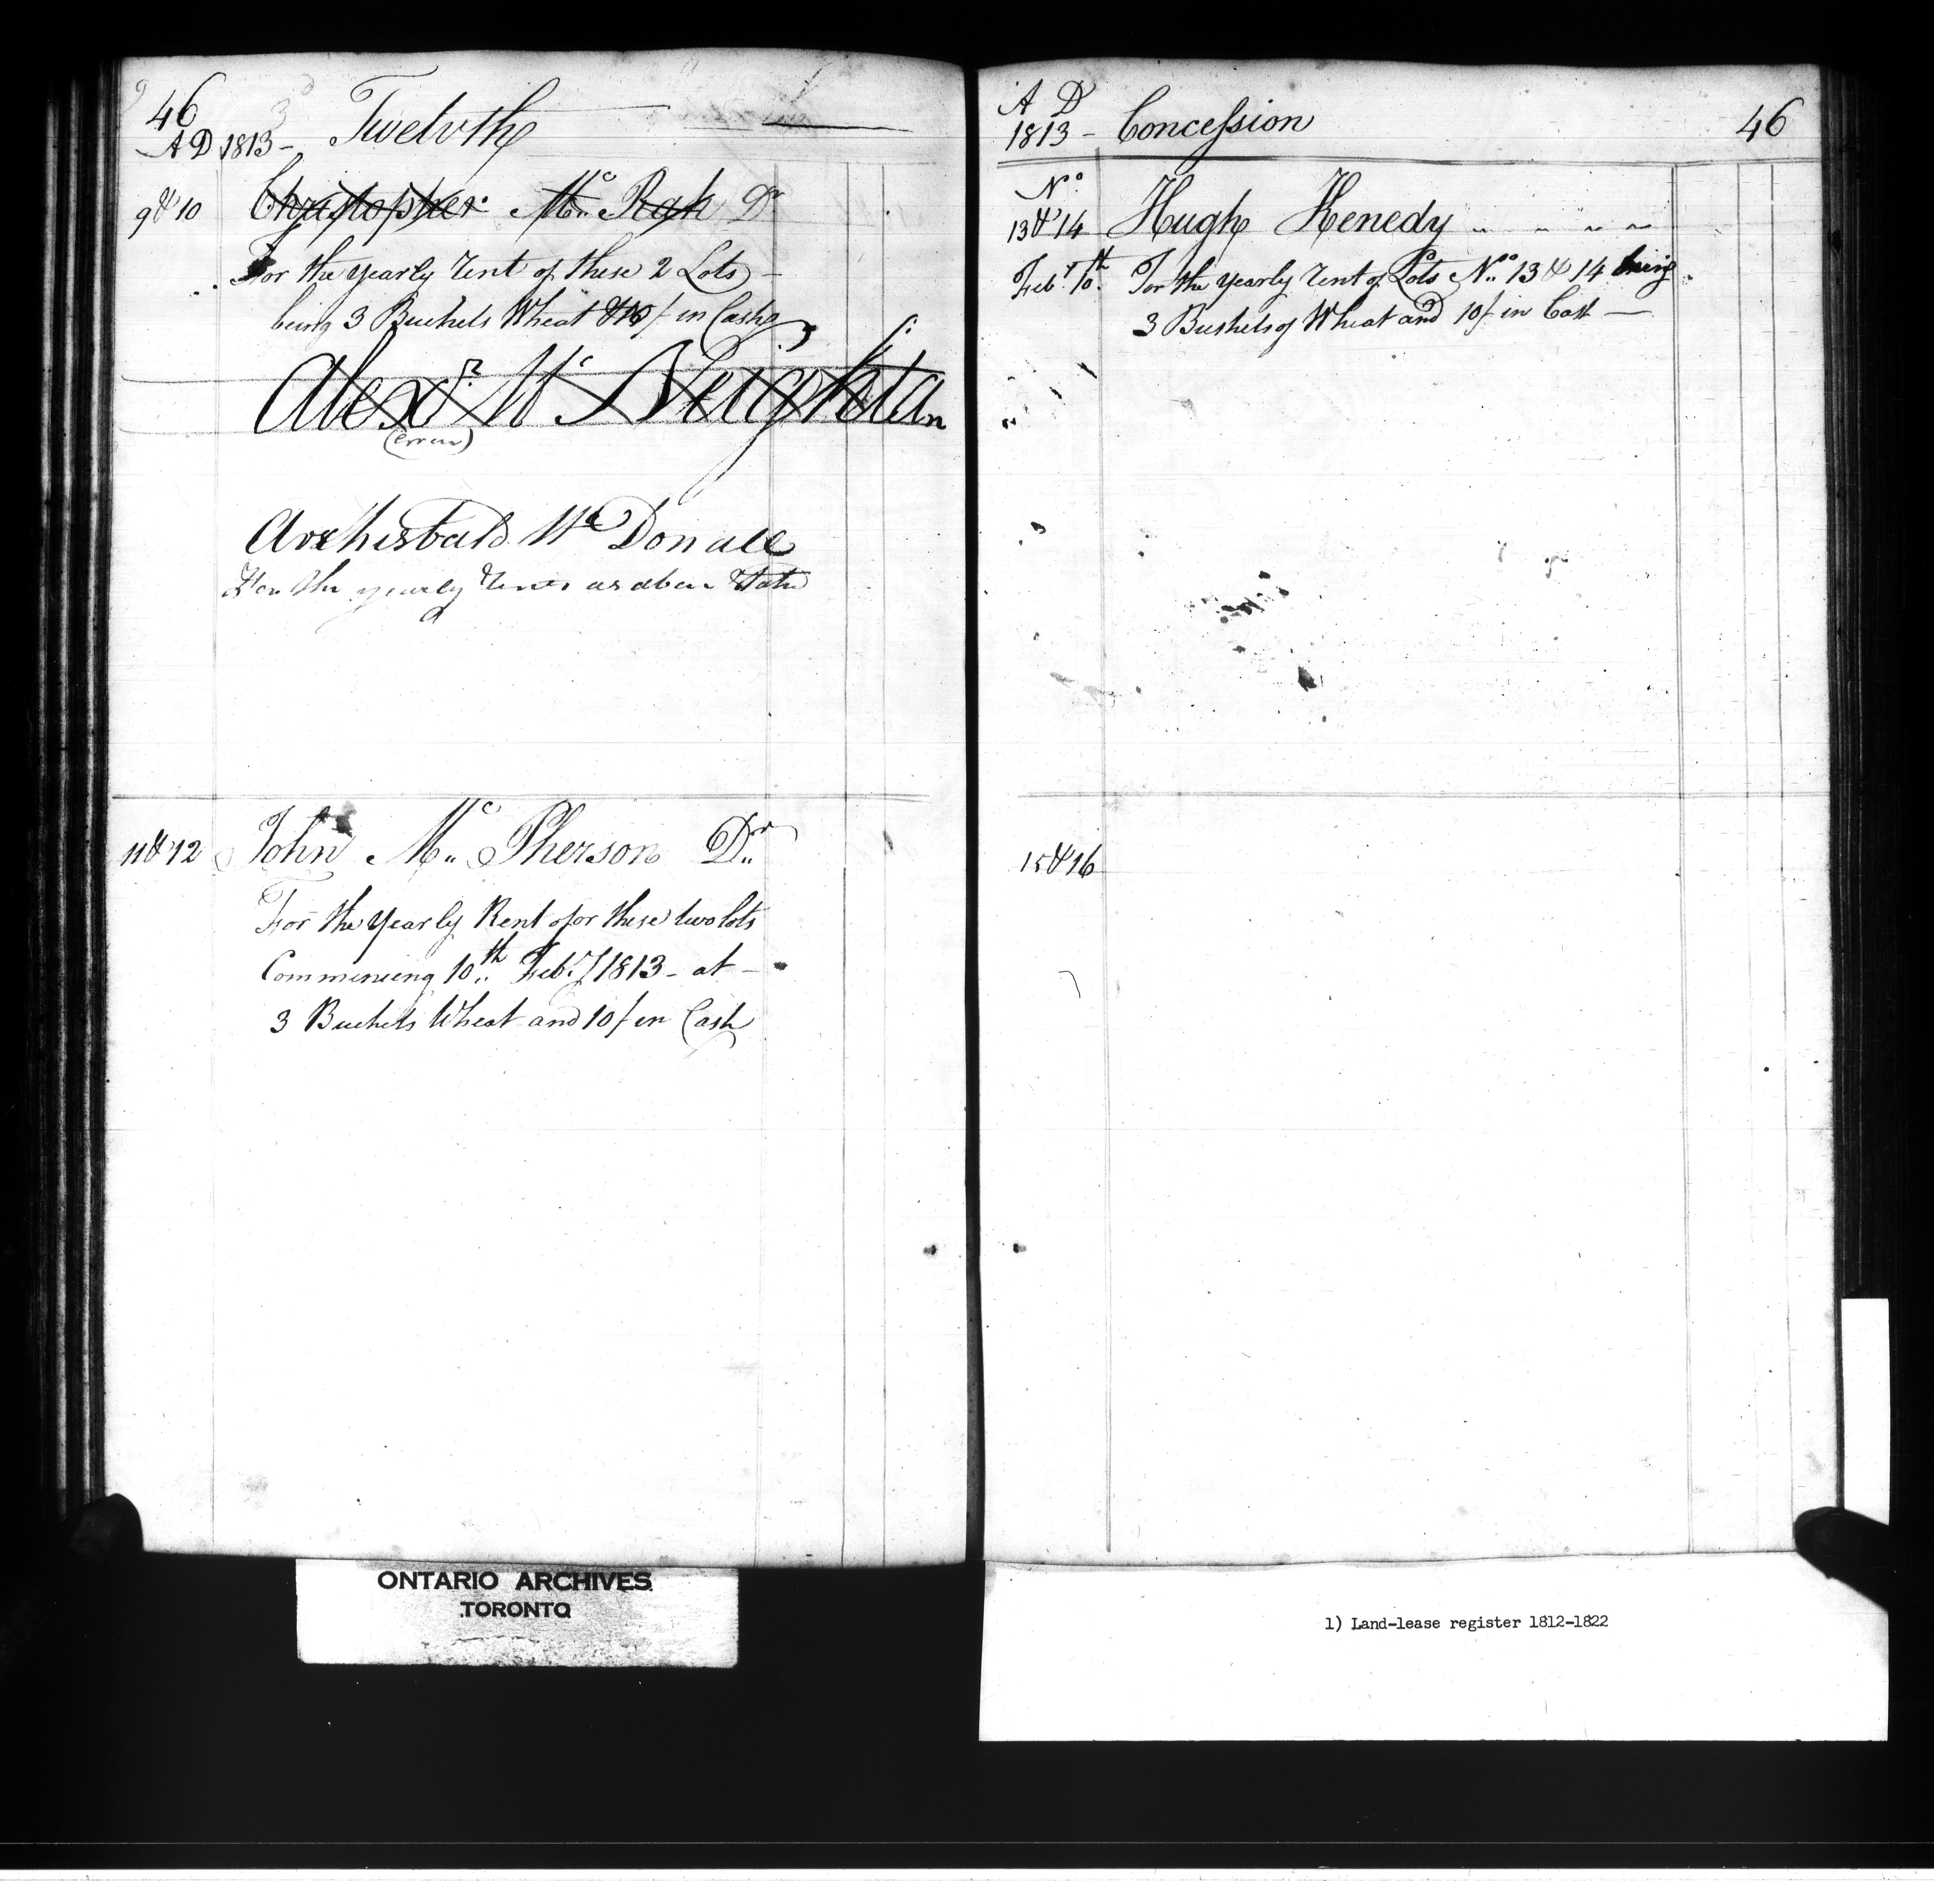 46
A D 1813 - Twelvth
9 & 10 Christopher Mc Rah Dr
For the yearly rent of these 2 Lots -
being 3 Buchels Wheat & 10/ in Cash
Alexr Mc Neightan
(error)
Archisbald Mc Donald
For the yearly Rents as above
11 & 12 John Mc Pherson Dr
For the yearly Rent of or these two lots
Commencing 10th Feby 1813 - at -
3 Buchels Wheat and 10/ in Cash
A D
1813 - Concession 46
No
13 & 14 Hugh Kenedy
Feby 10th For the yearly rent of Lots No 13 & 14 being
3 Bushels of Wheat and 10/ in Cash -
15 & 16
ONTARIO ARCHIVES
TORONTO
1) Land-lease register 1812-1822